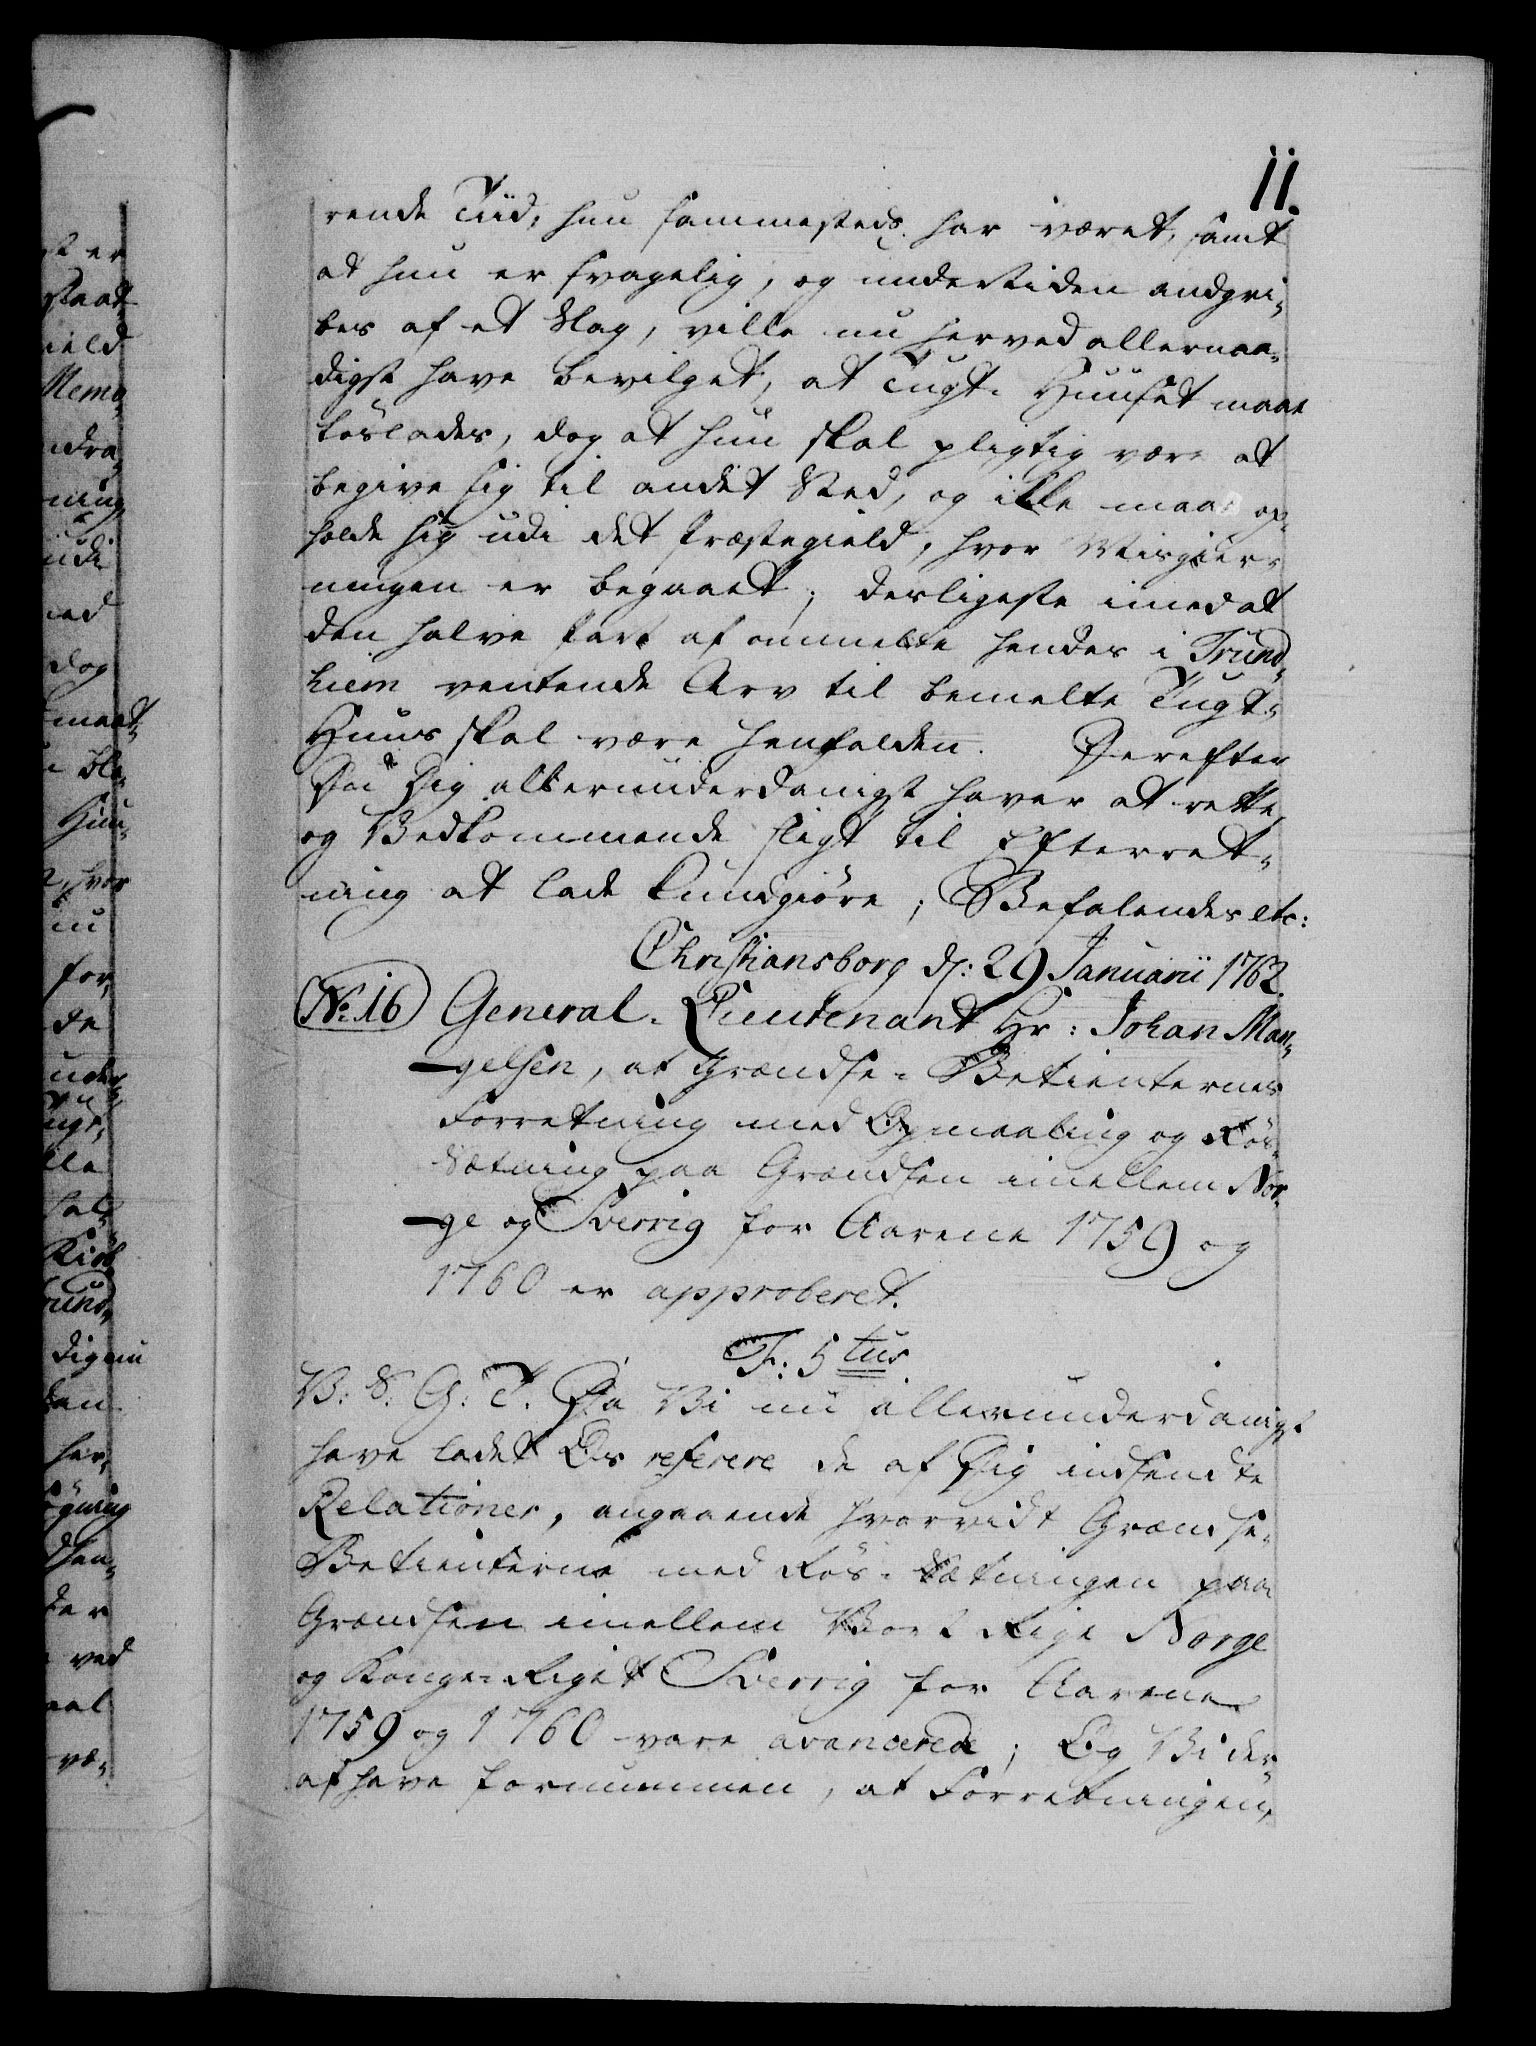 11.
rende Tiid, hun sammesteds har været, samt
at hun er svagelig, og undertiden andgri-
bes af et Slag, ville nu herved allernaa-
digst have bevilget, at Tugt-Huuset maae
løslades, dog at hun skal pligtig være at
begive sig til andet Sted, og ikke maae op-
holde sig udi det Præstegield, hvor Misgier-
ningen er begaaet; desligeste imedat
den halve Part af ommelte hendes i Trund-
hiem ventende Arv til bemelte Tugt-
Huus skal være henfalden. Derefter
Du Dig allerunderdanigst haver at rette,
og Vedkommende sligt til Efterret-
ning at lade kundgiøre; Befalendes etc:
Christiansborg d: 29 Januarii 1762.
No. 16 General-Lieutenant Hr: Johan Man-
gelsen, at Grændse-Betienternes
Forretning med Opmaaling og Røs-
Sætning paa Grændsen imellem Nor-
ge og Sverrig for Aarene 1759 og
1760 er approberet.
F: 5tus
V: S: G: T. Da Vi nu allerunderdanigst
have ladet Os referere de af Dig indsendte
Relationer, angaaende hvorvidt Grændse-
Betienterne med Røs-Sætningen paa
Grændsen imellem Vort Rige Norge
og Konge-Riget Sverrig for Aarene
1759 og 1760 vare avancerede; Og Vi der-
af have fornummen, at Forretningen,
gt er
staat
ield
Memo-
ndra-
ning
udi
ned
dog
maat-
Huu-
hvor
nu
for-
de
under-
lle
hal-
Trund-
Dig nu
den
her-
der
ved
aal
væ-